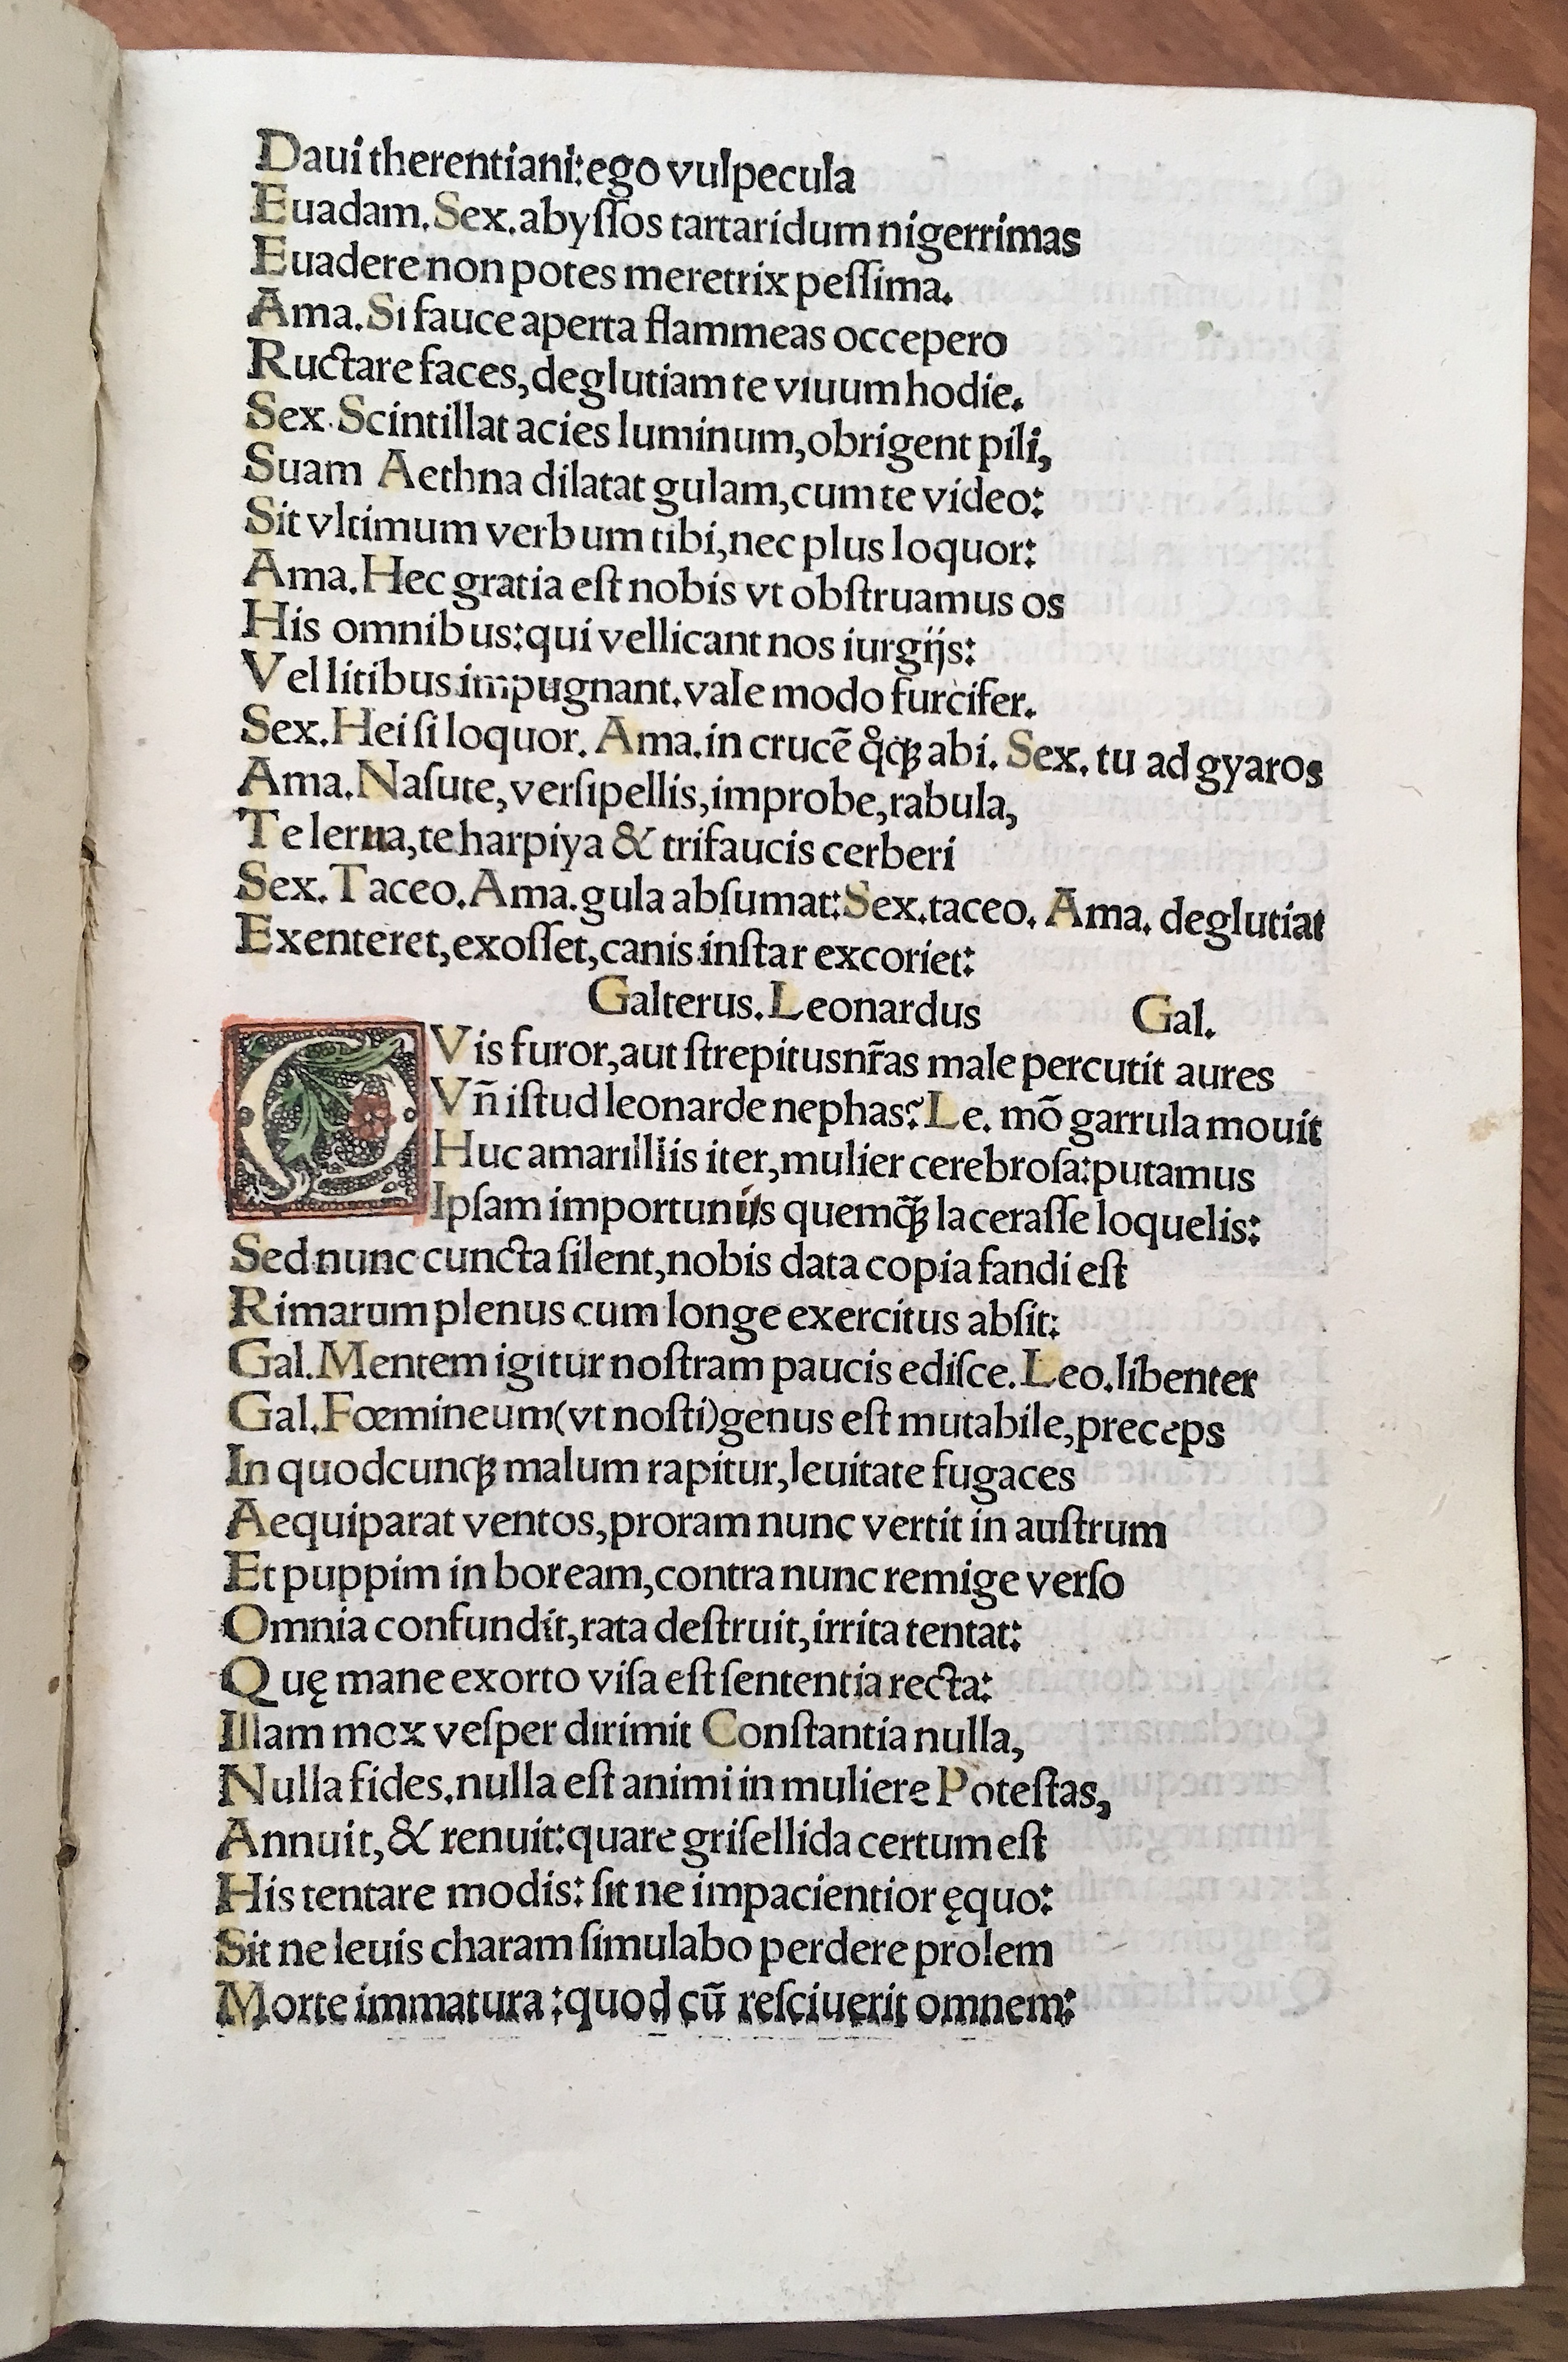 Daui therentiani:ego vulpecula
Euadam.Sex.abyſſos tartaridum nigerrimas
Euadere non potes meretrix peſſima.
Ama.Si fauce aperta flammeas occepero
Ructare faces,deglutiam te viuum hodie.
Sex.Scintillat acies luminum,obrigent pili,
Suam Aethna dilatat gulam,cum te video:
Sit vltimum verbum tibi,nec plus loquor:
Ama.Hec gratia eſt nobis vt obſtruamus os
His omnibus:qui vellicant nos iurgijs:
Vel litibus impugnant.vale modo furcifer.
Sex.Hei ſi loquor. Ama.in crucē q̊qꝫ abi. Sex. tu ad gyaros
Ama.Naſute,verſipellis,improbe,rabula,
Te lerna,te harpiya & trifaucis cerberi
Sex.Taceo.Ama.gula abſumat:Sex.taceo. Ama. deglutiat
Exenteret,exoſſet,canis inſtar excoriet:
Galterus.Leonardus Gal.
QVis furor,aut ſtrepitus nr̄as male percutit aures
Vn̄ iſtud leonarde nephas? Le. mō garrula mouit
Huc amarilliis iter,mulier cerebroſa:putamus
Ipſam importuniis quemq̄ꝫ laceraſſe loquelis:
Sed nunc cuncta ſilent,nobis data copia fandi eſt
Rimarum plenus cum longe exercitus abſit:
Gal.Mentem igitur noſtram paucis ediſce.Leo.libenter
Gal.Fœmineum(vt noſti)genus eſt mutabile,preceps
In quodcunqꝫ malum rapitur,leuitate fugaces
Aequiparat ventos,proram nunc vertit in auſtrum
Et puppim in boream,contra nunc remige verſo
Omnia confundit,rata deſtruit,irrita tentat:
Quę mane exorto viſa eſt ſententia recta:
Illam mox veſper dirimit Conſtantia nulla,
Nulla fides.nulla eſt animi in muliere Poteſtas,
Annuit,& renuit:quare griſellida certum eſt
His tentare modis: ſit ne impacientior ęquo:
Sit ne leuis charam ſimulabo perdere prolem
Morte immatura:quod cū reſciuerit omnem: